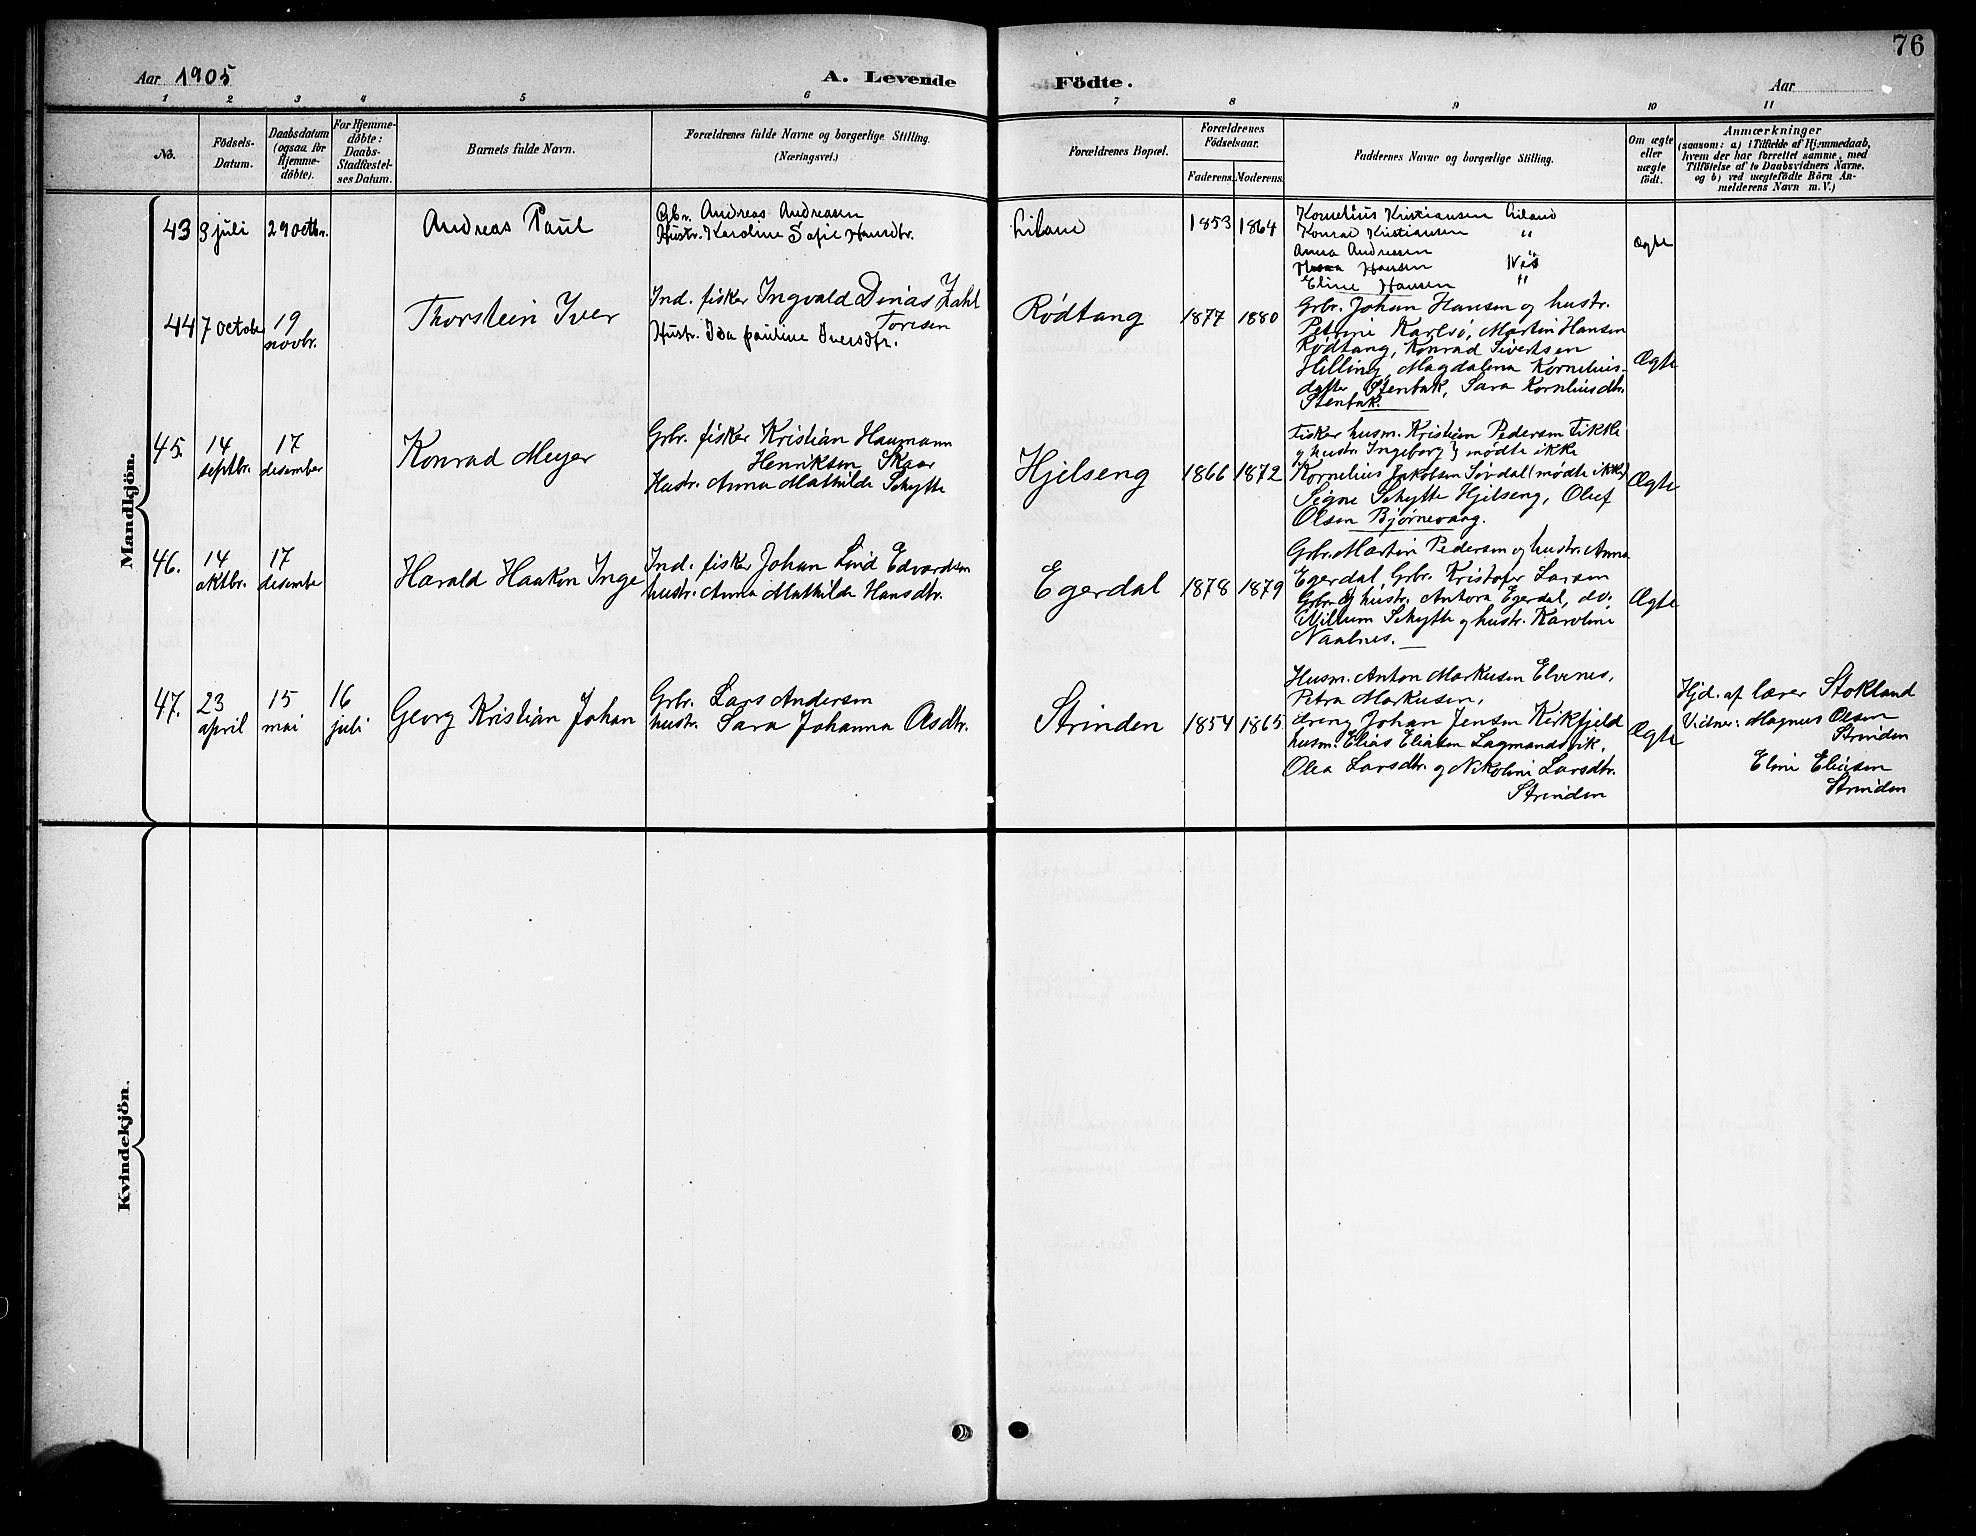 76
Aar 1905
A. Levende
Födte.
Aar
1 2 3 4 5 6 7 8 9 10 11
No.
Födsels-Datum.
Daabsdatum (ogsaa for Hjemme-döbte).
For Hjemme-döbte: Daabs-Stadfæstel-ses Datum.
Barnets fulde Navn.
Forældrenes fulde Navne og borgerlige Stilling.
(Næringsvei.)
Forældrenes Bopæl.
Forældrenes Födselsaar.
Faderens. Moderens.
Faddernes Navne og borgerlige Stilling.
Om ægte eller uægte födt.
Anmærkninger
(saasom: a) i Tilfælde af Hjemmedaab,
hvem der har forrettet samme, med
Tilföielse af to Daabsvidners Navne,
og b) ved uægtefödte Börn An-
melderens Navn m. V.)
Mandkjön.
43 9 juli 29 octbr. Andreas Paul
Gbr. Andreas Andreasen
Hustr. Karoline Sofie Hansdtr.
Liland 1853 1864
Kornelius Kristiansen Liland
Konrad Kristiansen "
Anna Andreasen
Hansen Næs
Eline Hansen "
Ægte
44 7 october 19 novbr. Thorstein Iver
Ind. fisker Ingvald Dinas Zahl
Toresen
Hustr. Ida pauline Iversdtr.
Rödtang 1877 1880
Grbr. Johan Hansen og hustr.
Petrine Karlsö, Martin Hansen
Rödtang, Konrad Sivertsen
Hilling, Magdalena Kornelius-
datter Stenbak, Sara Kornliusdtr.
Stenbak.
Ægte
45. 14 septbr. 17 desember Konrad Meyer
Grbr. fisker Kristian Haumann
Henriksen Skaar
Hustr. Anna Mathilde Schytte
Hjelseng 1866 1872
Fisker husm. Kristian Pedersen Fikke
og hustr. Ingeborg } mødte ikke
Kornelius Jakobsen Sövdal (mødte ikke)
Signe Schytte Hjelseng, Oluf
Olsen Bjørnevang.
Ægte
46. 14 oktbr. 17 desembe Harald Haakon Inge
Ind. fisker Johan Lind Edvardsen
hustr. Anna Mathilde Hansdtr.
Egerdal 1878 1879
Grbr. Martin Pedersen og hustr. Anna
Egerdal, Grbr. Kristofer Larsen
Grbr. og hustr. Antora Egerdal, do.
Willum Schytte og hustr. Karoline
Naalnes.
Ægte
47. 23 april 15 mai 16 juli Georg Kristian Johan
Grbr. Lars Andersen
hustr. Sara Johanna Asdtr.
Strinden 1854 1865
Husm. Anton Markusen Elvenes,
Petra Markusen,
dreng Johan Jensen Kirkfjeld
husm. Elias Eliasen Lagmandsvik,
Olea Larsdtr. og Nikoline Larsdtr.
Strinden
Ægte
Hjd. af lærer Stokland
Vidner: Magnus Olsen
Strinden
Eline Eliasen
Strinden
Kvindekjön.